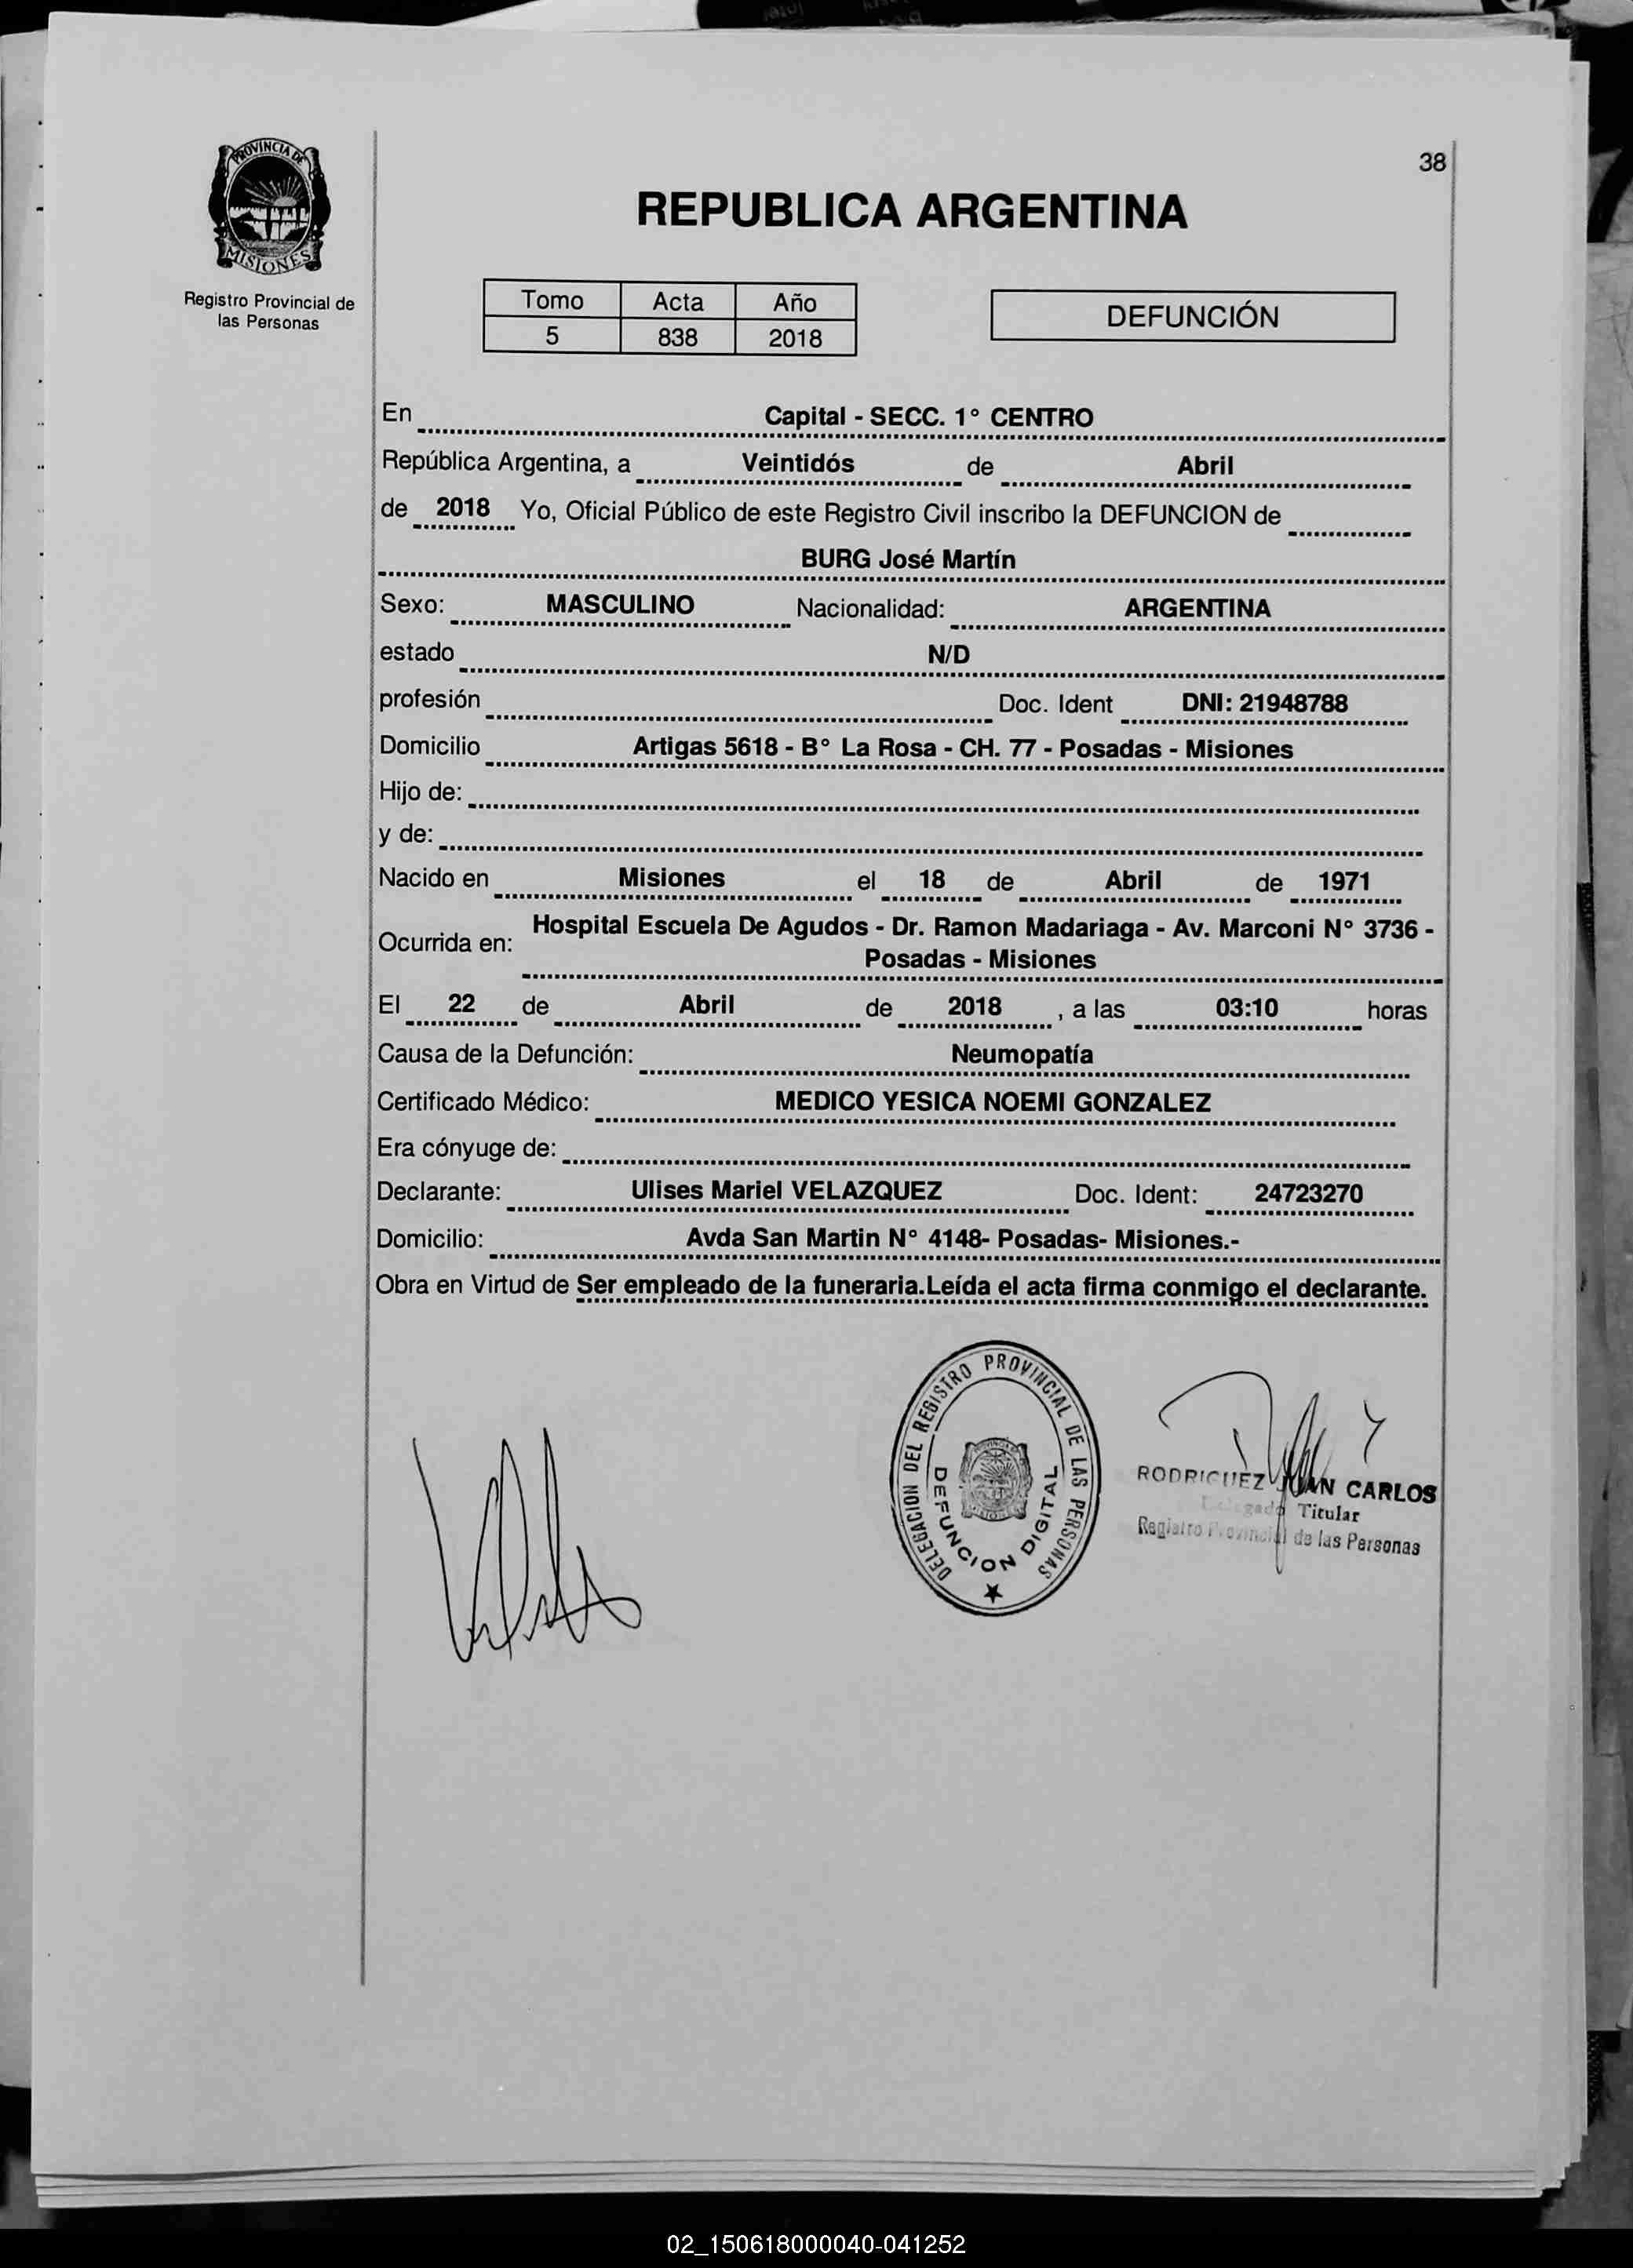 38
PROVINCIA DE
MISIONES
Registro Provincial de
las Personas
REPUBLICA ARGENTINA
Tomo Acta Año
5 838 2018
DEFUNCIÓN
En Capital - SECC. 1° CENTRO
República Argentina, a Veintidós de Abril
de 2018 Yo, Oficial Público de este Registro Civil inscribo la DEFUNCION de
BURG José Martín
Sexo: MASCULINO Nacionalidad: ARGENTINA
estado N/D
profesión Doc. Ident DNI: 21948788
Domicilio Artigas 5618 - B° La Rosa - CH. 77 - Posadas - Misiones
Hijo de:
y de:
Nacido en Misiones el 18 de Abril de 1971
Ocurrida en: Hospital Escuela De Agudos - Dr. Ramon Madariaga - Av. Marconi N° 3736 -
Posadas - Misiones
El 22 de Abril de 2018 , a las 03:10 horas
Causa de la Defunción: Neumopatía
Certificado Médico: MEDICO YESICA NOEMI GONZALEZ
Era cónyuge de:
Declarante: Ulises Mariel VELAZQUEZ Doc. Ident: 24723270
Domicilio: Avda San Martin N° 4148- Posadas- Misiones.-
Obra en Virtud de Ser empleado de la funeraria.Leída el acta firma conmigo el declarante.
DELEGACION DEL REGISTRO PROVINCIAL DE LAS PERSONAS
DEFUNCION DIGITAL
RODRIGUEZ JUAN CARLOS
Delegado Titular
Registro Provincial de las Personas
02_150618000040-041252